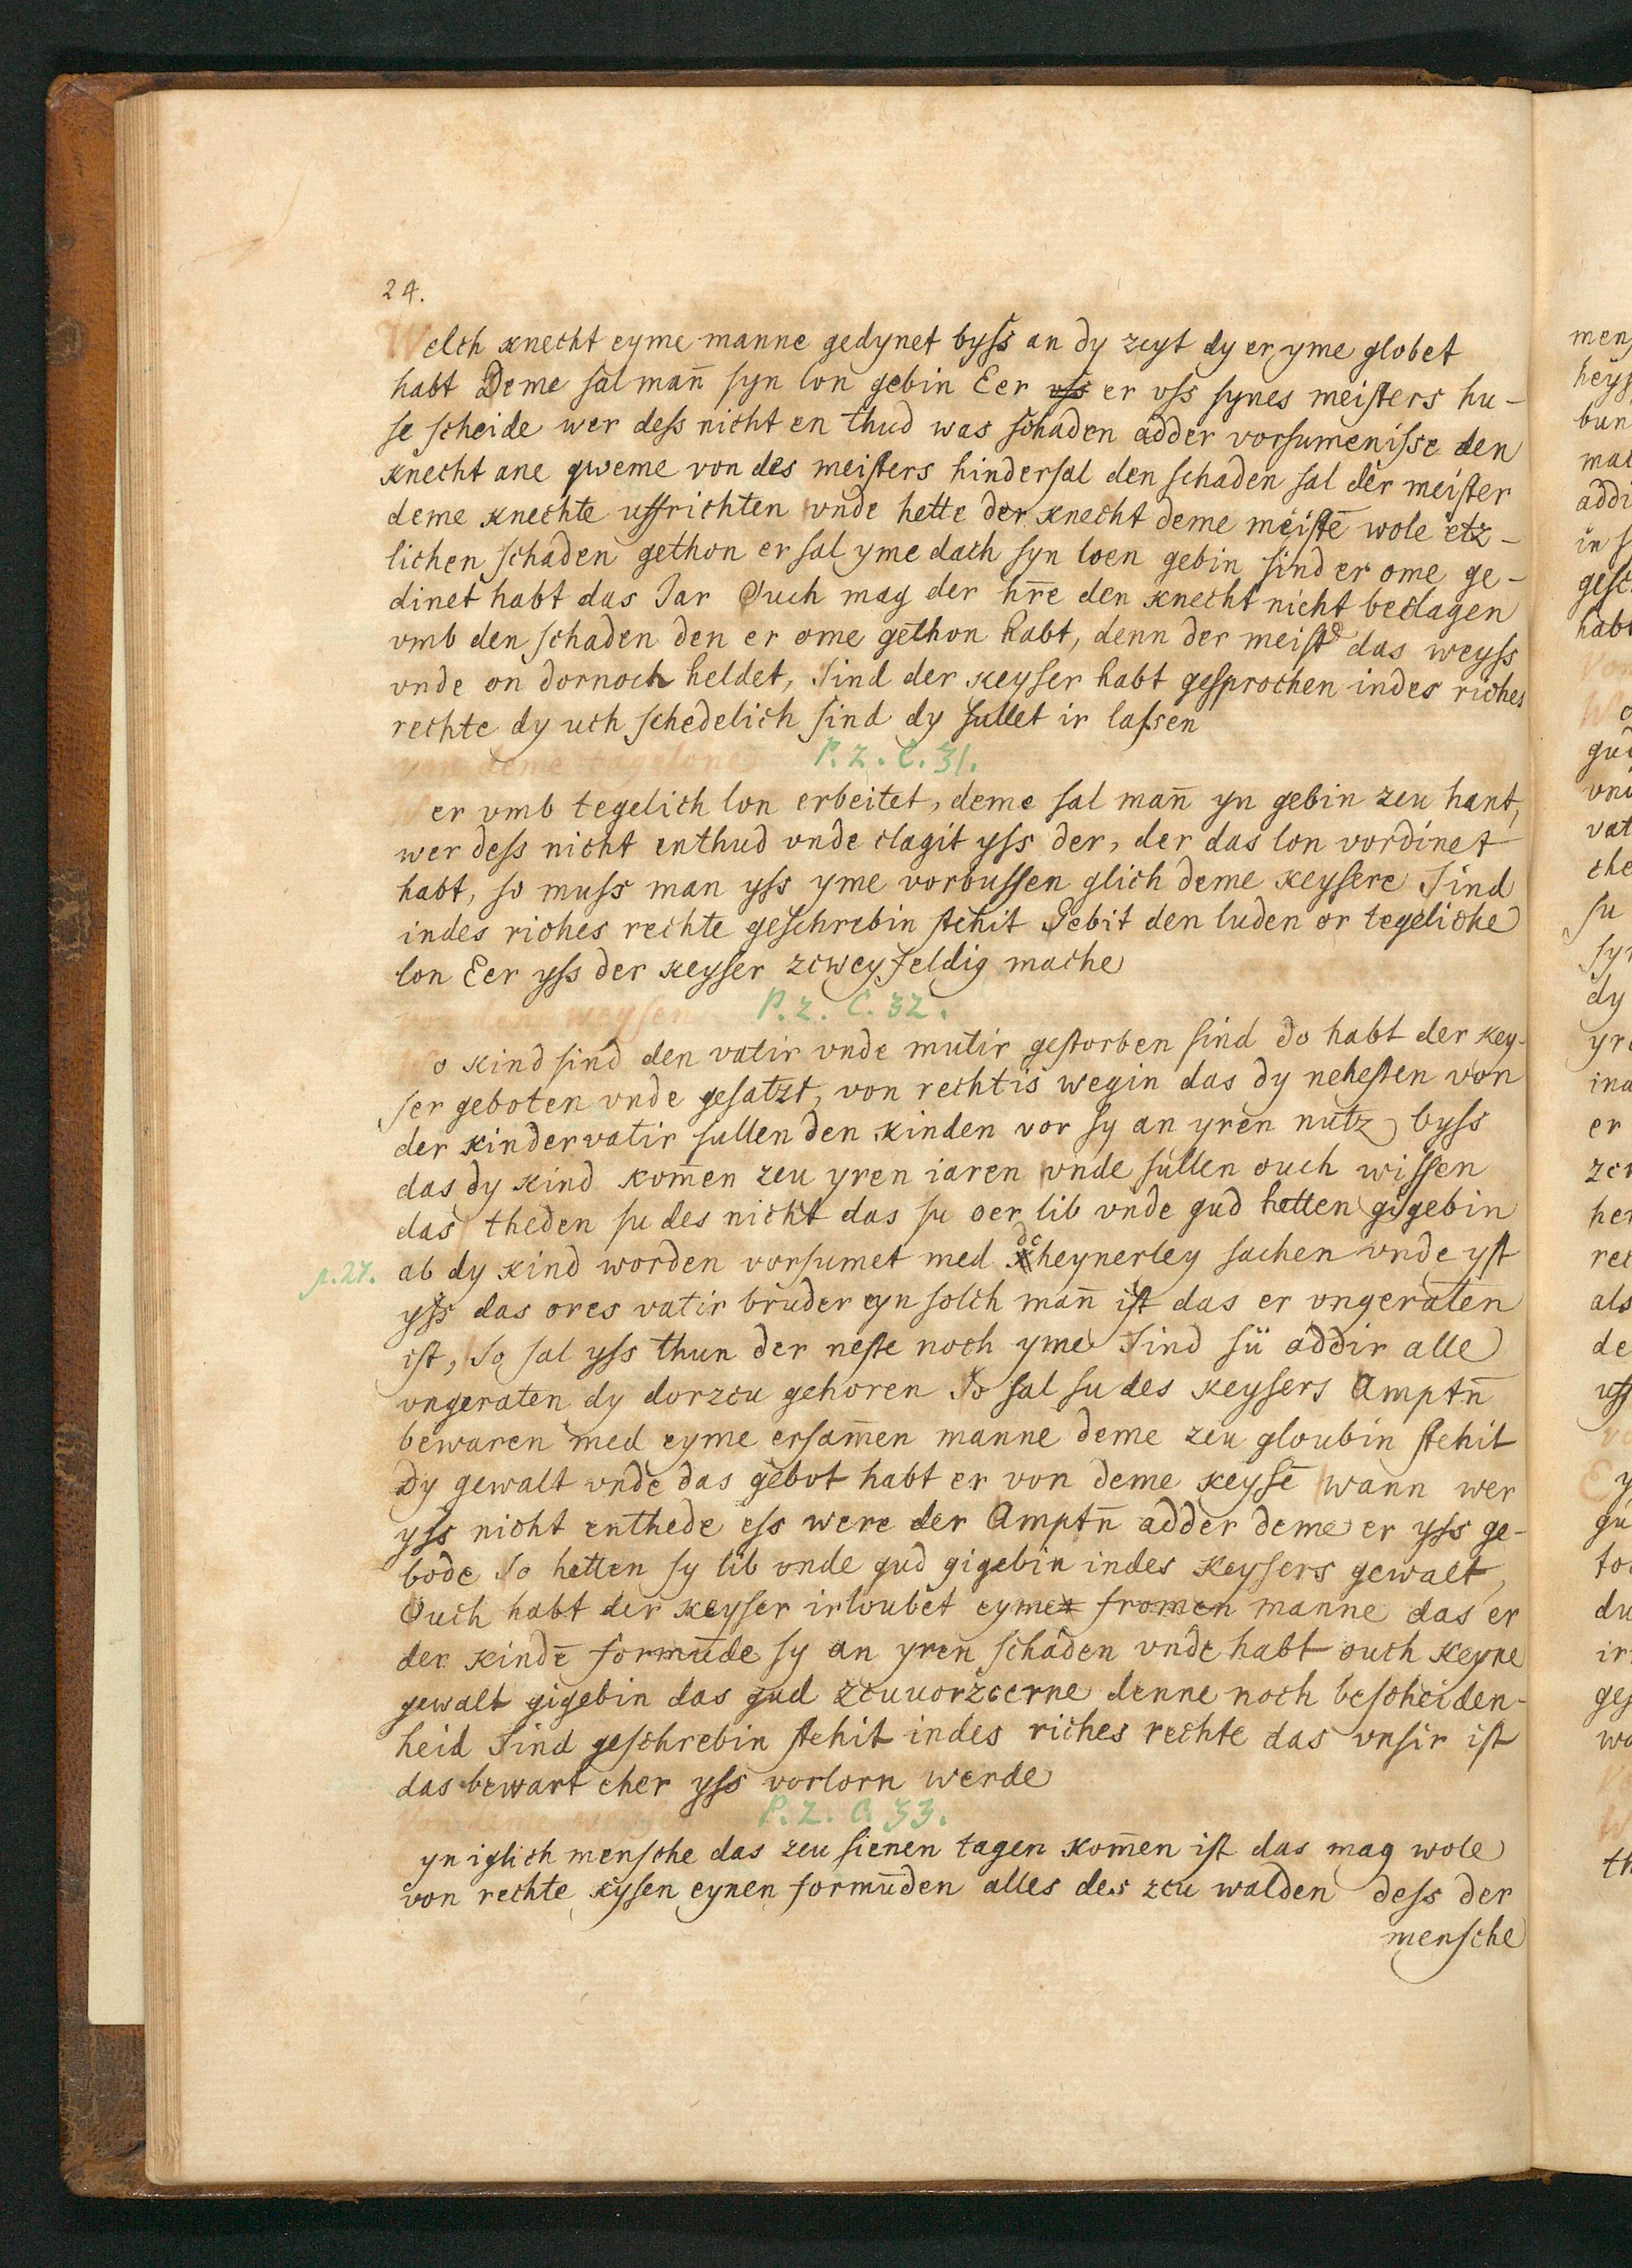 24.
Welch knecht eyme manne gedynet byſs an dy zcyt dy er yme globet
habt Deme sal man̄ syn lon gebin Eer vſs er vſs synes meiſters hu-
se scheide wer deſs nicht en thud was schaden adder vorsumeniſse den
knecht ane qweme von des meiſters hindersal den schaden sal der meiſter
deme knechte uffrichten vnde hette der knecht deme meiſtē wole etz-
lichen schaden gethon er sal yme dach syn loen gebin sind er ome ge-
dinet habt das Jar Ouch mag der hr̄e den knecht nicht beclagen
vmb den schaden den er ome gethon habt, denn der meiſt das weyſs
vnde on dornoch heldet, Sind der keyser habt gesprochen indes riches
rechte dy uch schedelich sind dy sullet ir laſsen
von deme tagelone P. 2. C. 31.
Wer vmb tegelich lon erbeitet, deme sal man̄ yn gebin zcu hant,
wer deſs nicht enthud vnde clagit yſs der, der das lon vordinet
habt, so muſs man yſs yme vorbuſsen glich deme keysere Sind
indes riches rechte geschrebin ſtehit Gebit den luden or tegeliche
lon Eer yſs der keyser zcweyfeldig mache
weysen P. 2. C. 32.
Wo kind sind den vatir vnde mutir geſtorben sind do habt der key-
ser geboten vnde gesatzt, von rechtis wegin das dy neheſten von
der kinder vatir sullen den kinden vor sy an yren nutz byſs
das dy kind kom̄en zcu yren iaren vnde sullen ouch wiſsen
das theden su des nicht das su oer lib vnde gud hetten gigebin
p. 27. ab dy kind worden vorsumet med dcheynerley sachen vnde yſt
yſs das ores vatir bruder eyn solch man̄ iſt das er vngeraten
iſt, So sal yſs thun der neſte noch yme Sind sü addir alle
vngeraten dy dorzcu gehoren So sal su des keysers Amptn̄
bewaren med eyme ersam̄en manne deme zcu gloubin ſtehit
Dy gewalt vnde das gebot habt er von deme keysē wann wer
yſs nicht enthede eſs were der Amptn̄ adder deme er yſs ge-
bode So hetten sy lib vnde gud gigebin indes keysers gewalt,
Ouch habt der keyser irloubet eyme fromen manne das er
der kindē formūde sy an yren schaden vnde habt ouch keyne
gewalt gigebin das gud zcuuorzcerne denne noch bescheiden-
heid Sind geschrebin ſtehit indes riches rechte das vnsir iſt
das bewart eher yſs vorlorn werde
P. 2. C. 33.
yn iglich mensche das zcu sienen tagen kom̄en iſt das mag wole
von rechte kysen eynen formūden alles des zcu walden deſs der
mensche